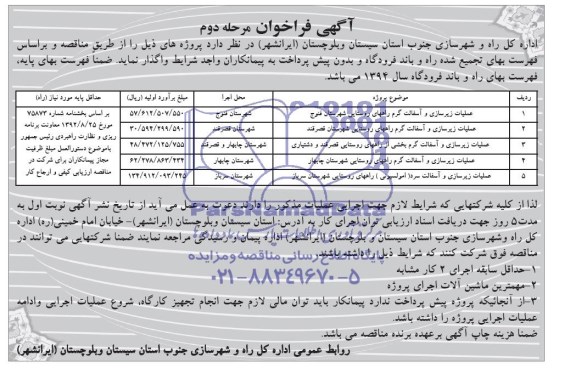 آگهی فراخوان مرحله دوم
اداره کل راه و شهرسازی جنوب استان سیستان وبلوچستان (ایرانشهر) در نظر دارد پروژه های ذیل را از طریق مناقصه و براساس
فهرست بهای تجمیع شده راه و باند فرودگاه و بدون پیش پرداخت به پیمانکاران واجد شرایط واگذار نماید. ضمناً فهرست بهای پایه،
فهرست بهای راه و باند فرودگاه سال ۱۳۹۴ می باشد.
ردیف موضوع پروژه محل اجرا مبلغ برآورد اولیه (ریال) حداقل پایه مورد نیاز (راه)
۱ عملیات زیرسازی و آسفالت گرم راههای روستایی شهرستان فنوج شهرستان فنوج ۵۷/۶۱۲/۵۰۷/۵۵۰
۲ عملیات زیرسازی و آسفالت گرم راههای روستایی شهرستان قصرقند شهرستان قصرقند ۳۰/۵۹۴/۲۹۹/۵۹۰
۳ عملیات زیرسازی و آسفالت گرم بخشی از راههای روستایی قصرقند و دشتیاری شهرستان چابهار و قصرقند ۲۸/۴۷۲/۱۲۵/۷۵۵
۴ عملیات زیرسازی و آسفالت گرم راههای روستایی شهرستان چابهار شهرستان چابهار ۶۲/۲۷۸/۸۶۳/۲۳۲
۵ عملیات زیرسازی و آسفالت سرد( امولسیونی ) راههای روستایی شهرستان سرباز شهرستان سرباز ۱۳۴/۹۱۲/۰۹۳/۲۴۵
بر اساس بخشنامه شماره ۷۵۸۷۳
مورخ ۱۳۹۲/۸/۲۵ معاونت برنامه
ریزی و نظارت راهبردی رئیس جمهور
باموضوع دستورالعمل مبلغ ظرفیت
مجاز پیمانکاران برای شرکت در
مناقصه ارزیابی کیفی و ارجاع کار
لذا از کلیه شرکتهایی که شرایط لازم جهت اجرایی عملیات مذکور را دارند دعوت به عمل می آید از تاریخ نشر آگهی نوبت اول به
مدت۵ روز جهت دریافت اسناد ارزیابی توان اجرای کار به آدرس: استان سیستان وبلوچستان (ایرانشهر)- خیابان امام خمینی(ره) اداره
کل راه وشهرسازی جنوب استان سیستان و بلوچستان (ایرانشهر) اداره پیمان و رسیدگی مراجعه نمایند ضمنا شرکتهایی می توانند در
مناقصه فوق شرکت کنند که شرایط ذیل را داشته باشند.
۱-حداقل سابقه اجرای ۲ کار مشابه
۲-مهمترین ماشین آلات اجرای پروژه
۳-از آنجائیکه پروژه پیش پرداخت ندارد پیمانکار باید توان مالی لازم جهت انجام تجهیز کارگاه، شروع عملیات اجرایی وادامه
عملیات اجرایی پروژه را داشته باشد.
ضمنا هزینه چاپ آگهی برعهده برنده مناقصه می باشد.
روابط عمومی اداره کل راه و شهرسازی جنوب استان سیستان وبلوچستان (ایرانشهر)
ParsNamadData
پایگاه اطلاع رسانی مناقصه و مزایده
۰۲۱-۸۸۳۴۹۶۷۰-۵